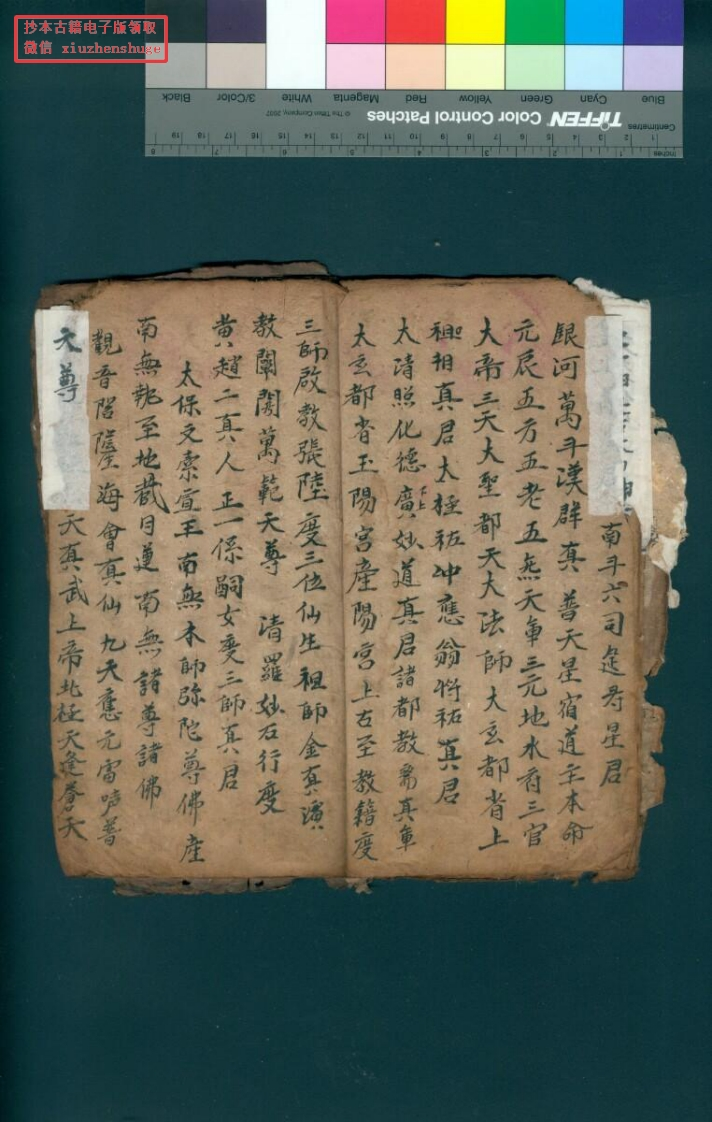 抄本古籍电子版领取
微信 xiuzhenshuge
Blue Cyan Green Yellow Red Magenta White 3/Color Black
TIFFEN Color Control Patches © The Tiffen Company, 2007
Centimetres
Inches
南斗六司延寿星君
銀河萬斗漢群真 普天星宿道主本命
元辰五方五老五炁天軍三元地水府三官
大帝三天大聖都天大法師 大玄都省上
相真君太極祐冲應翁將祐真君
太清照化德廣妙道真君諸都教需真軍
太玄都省玉陽宮産陽宮上古至教籍度
三師啟教張陸度三位仙生祖師金真演
教闡閱萬範天尊 清羅妙右行度
黄趙二真人 正一係嗣女度三師真君
太保文索宣王南無本師弥陀尊佛産
南無乾至地藏目蓮南無諸尊諸佛
觀音陞座海會真仙九天應元雷声普
天尊 天真武上帝北極天逢蒼天